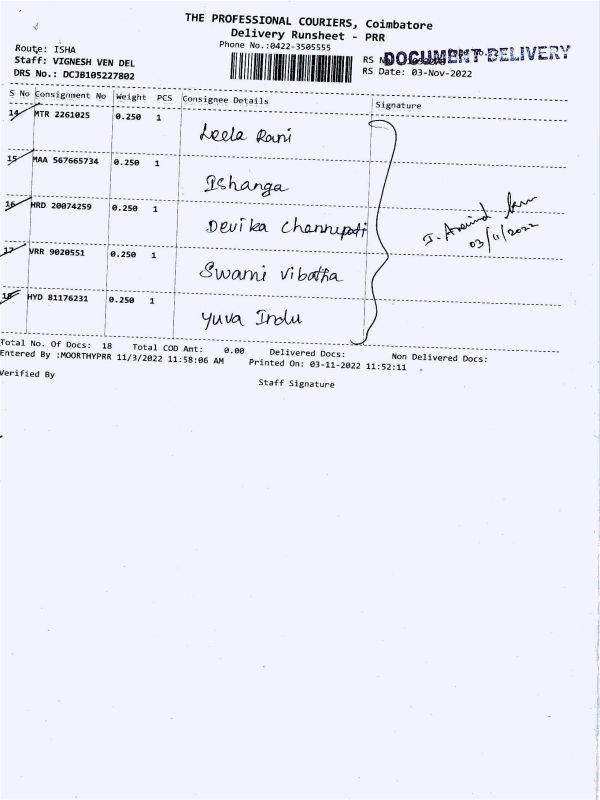 THE PROFESSIONAL COURIERS, Coimbatore
Delivery Runsheet - PRR
Phone No.:0422-3505555
Route: ISHA
Staff: VIGNESH VEN DEL
DRS No.: DCJB105227802
RS
DOCUMENT DELIVERY
RS Date: 03-Nov-2022
S No Consignment No Weight PCS Consignee Details Signature
14 MTR 2261025 0.250 1 Leela Rani
15 MAA 567665734 0.250 1 Ishanga
16 HRD 20074259 0.250 1 Devika Channupati
17 VRR 9020551 0.250 1 Swami Vibotha
18 HYD 81176231 0.250 1 Yuva Indu
03/11/2022
Total No. Of Docs: 18 Total COD Amt: 0.00 Delivered Docs: Non Delivered Docs:
Entered By :MOORTHYPRR 11/3/2022 11:58:06 AM Printed On: 03-11-2022 11:52:11
Verified By Staff Signature